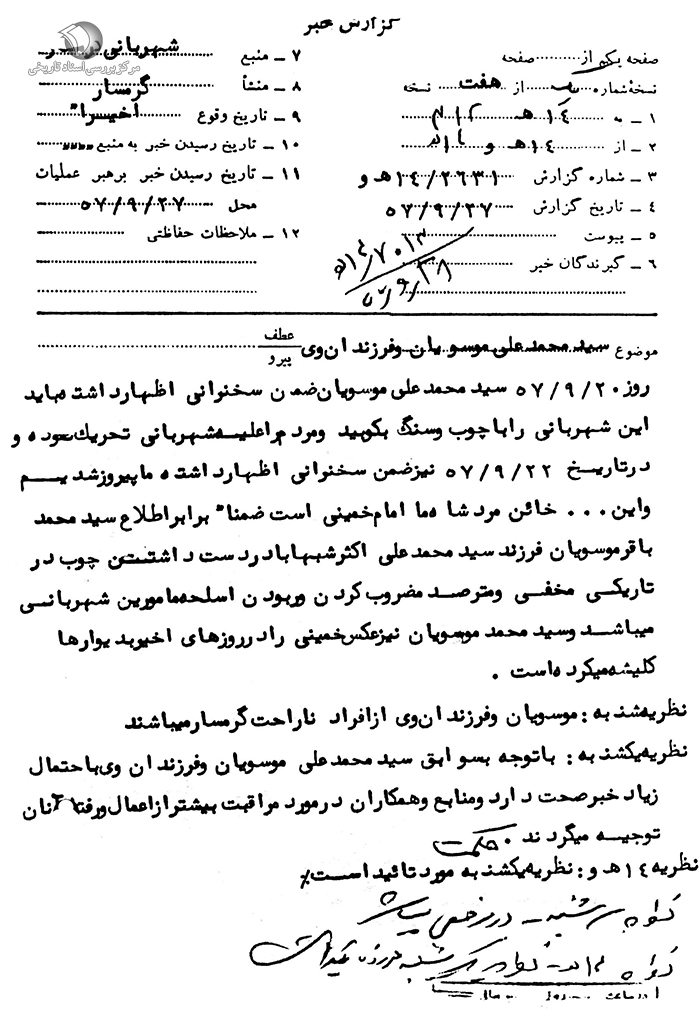 گزارش خبر
صفحه یکم از صفحه
نسخه شماره از هفت نسخه
۱ – به ۱۴ هـ ۳۱۲
۲ – از ۱۴ هـ و
۳ – شماره گزارش ۱۴/۲۶۳۱ هـ و
۴ – تاریخ گزارش ۵۷/۹/۲۷
۵ – پیوست
۶ – گیرندگان خبر
۷ – منبع شهربانی
۸ – منشأ گرمسار
۹ – تاریخ وقوع اخیراً
۱۰ – تاریخ رسیدن خبر به منبع
۱۱ – تاریخ رسیدن خبر برهبر عملیات
محل ۵۷/۹/۲۷
۱۲ – ملاحظات حفاظتی
مرکز بررسی اسناد تاریخی
موضوع سید محمد علی موسویان و فرزندان وی
عطف
پیرو
روز ۵۷/۹/۲۰ سید محمد علی موسویان ضمن سخنرانی اظهار داشته باید
این شهربانی را با چوب و سنگ بکوبید و مردم را علیه شهربانی تحریک نموده و
در تاریخ ۵۷/۹/۲۲ نیز ضمن سخنرانی اظهار داشته ما پیروز شدیم
و این ... خائن مرد شاه ما امام خمینی است ضمناً برابر اطلاع سید محمد
باقر موسویان فرزند سید محمد علی اکثر شبها با در دست داشتن چوب در
تاریکی مخفی و مترصد مضروب کردن و ربودن اسلحه مامورین شهربانی
میباشد و سید محمد موسویان نیز عکس خمینی را در روزهای اخیر بدیوارها
کلیشه میکرده است .
نظریه شنبه : موسویان و فرزندان وی از افراد ناراحت گرمسار میباشند
نظریه یکشنبه : با توجه بسوابق سید محمد علی موسویان و فرزندان وی با احتمال
زیاد خبر صحت دارد و منابع و همکاران در مورد مراقبت بیشتر از اعمال و رفتار آنان
توجیه میگردند . حکمت
نظریه ۱۴ هـ و : نظریه یکشنبه مورد تائید است